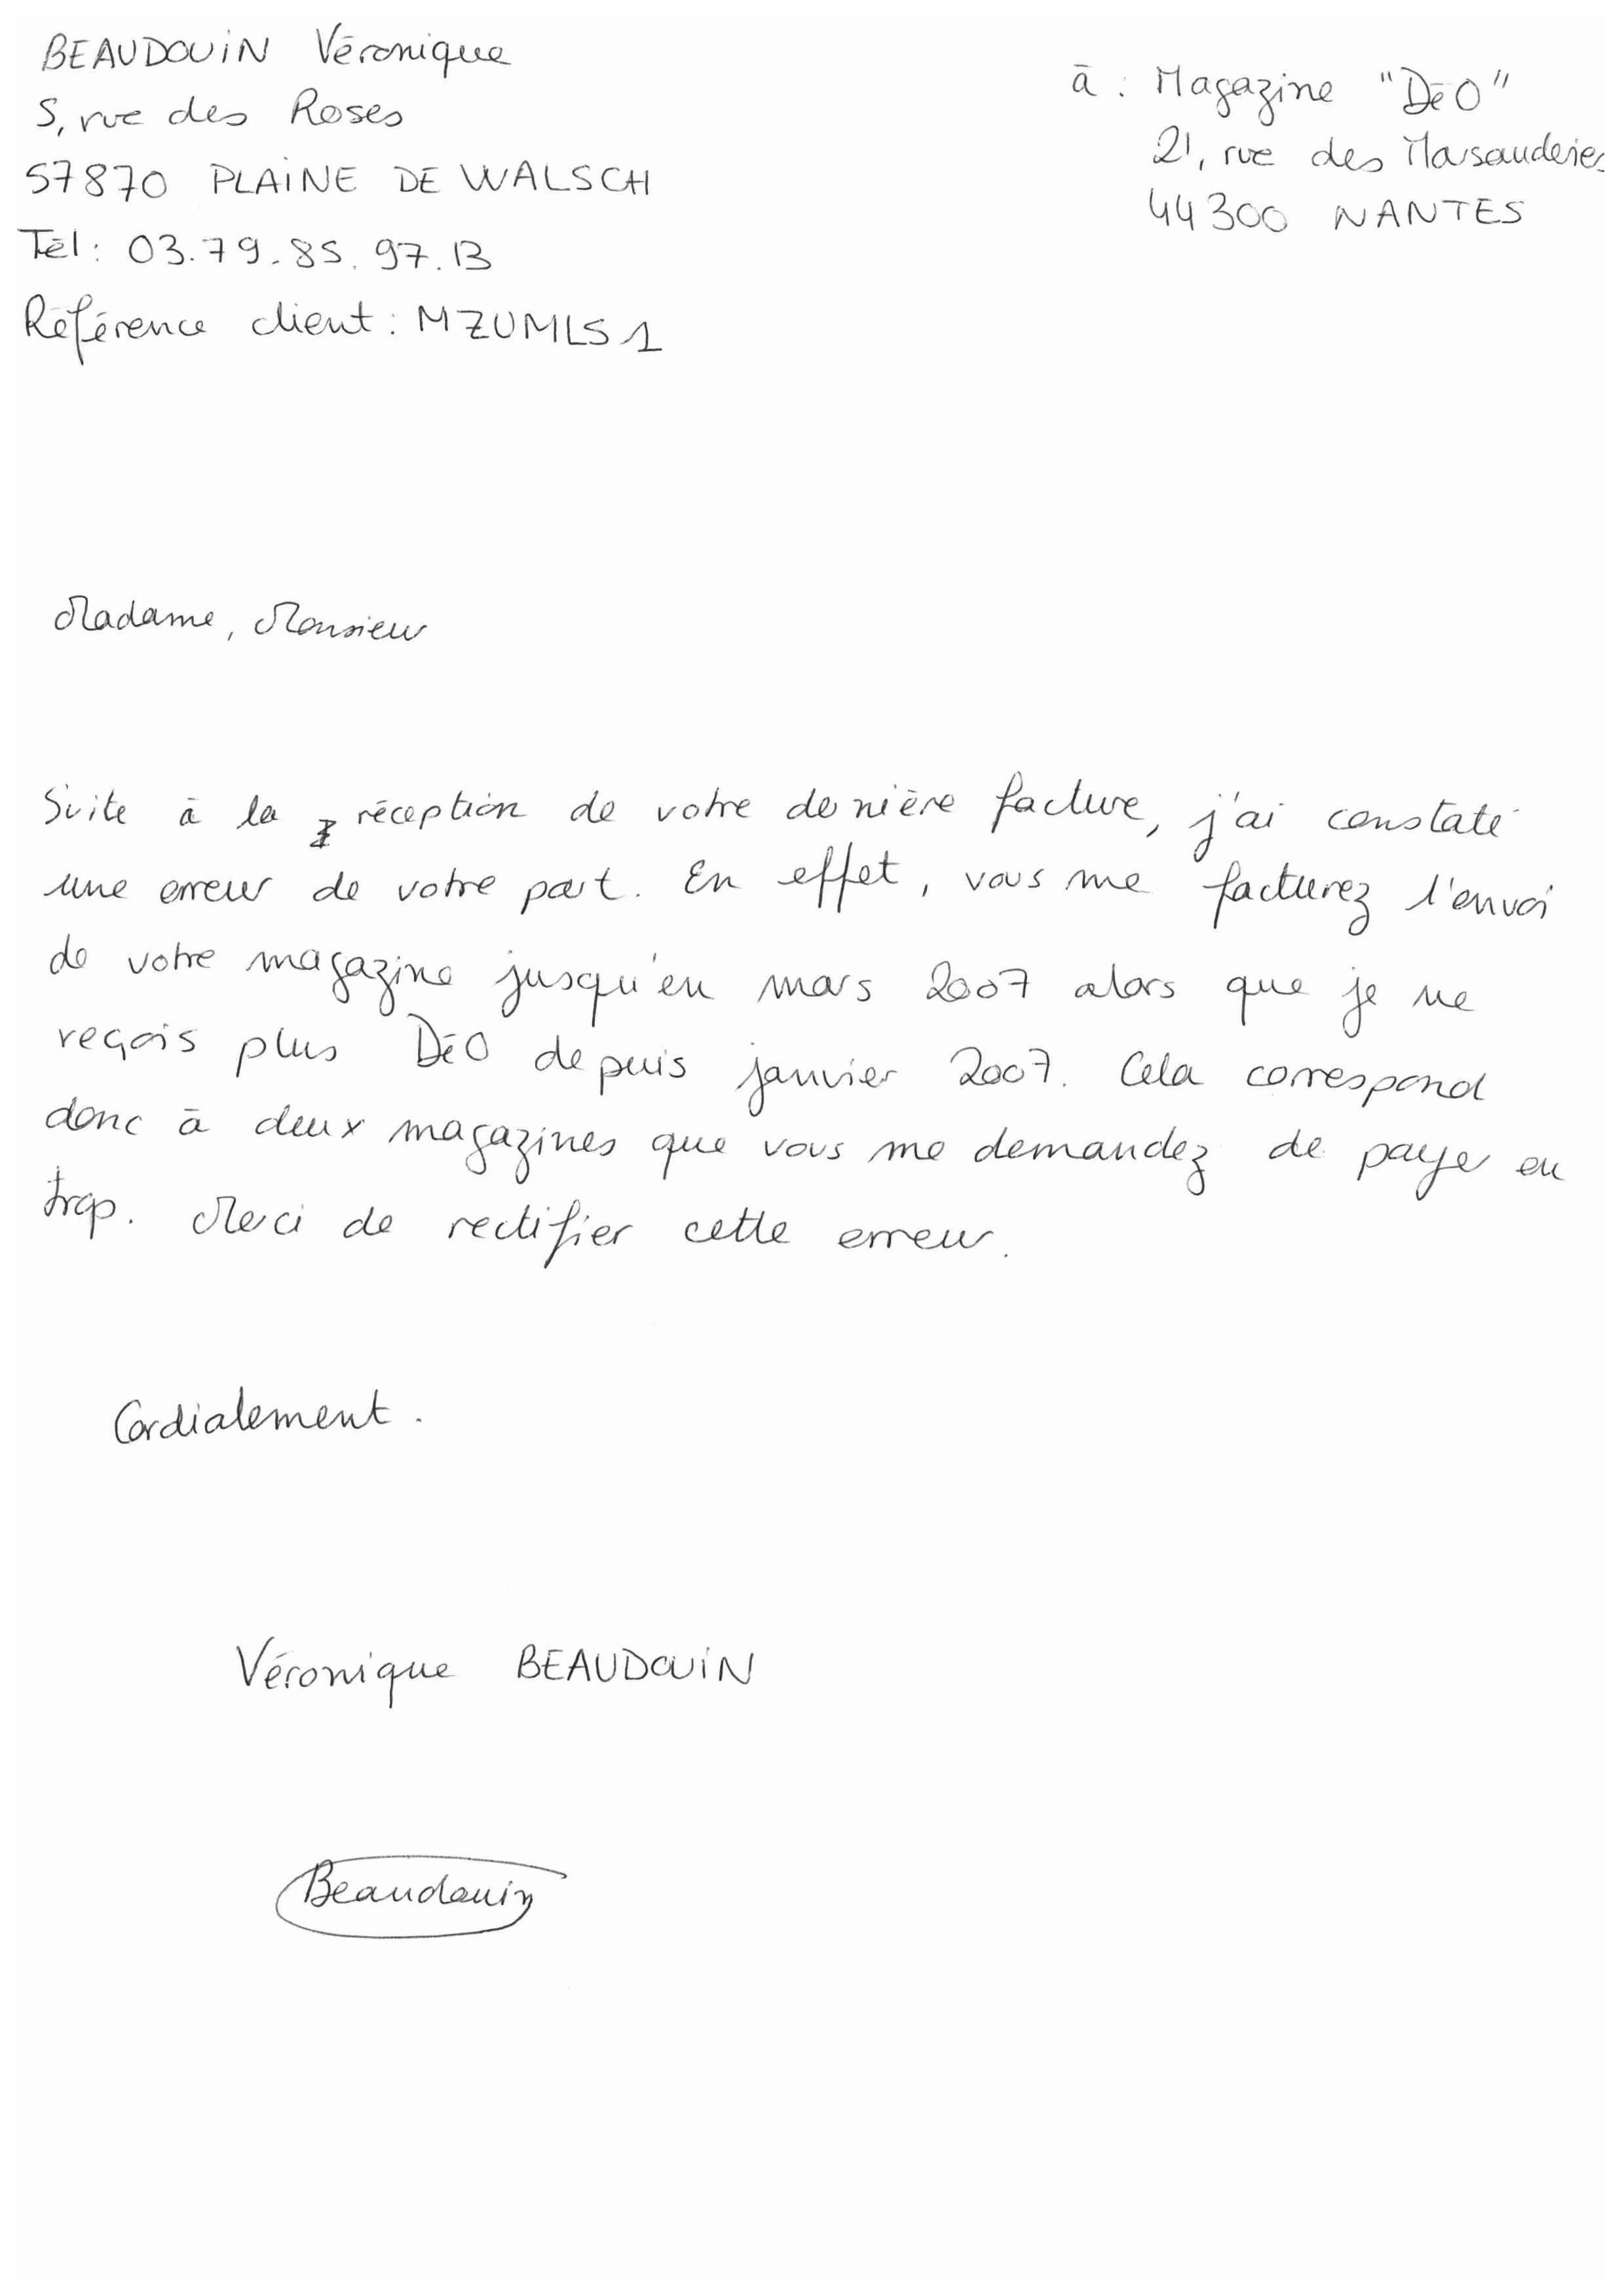 BEAUDOUIN Véronique
5, rue des Roses
57870 PLAINE DE WALSCH
Tél : 03.79.85.97.13
Référence client : MZUMLS1
à : Magazine "DéO"
21, rue des Marsauderies
44300 NANTES
Madame, Monsieur
Suite à la réception de votre dernière facture, j'ai constaté
une erreur de votre part. En effet, vous me facturez l'envoi
de votre magazine jusqu'en mars 2007 alors que je ne
reçois plus DéO depuis janvier 2007. Cela correspond
donc à deux magazines que vous me demandez de payer en
trop. Merci de rectifier cette erreur.
Cordialement.
Véronique BEAUDOUIN
Beaudouin